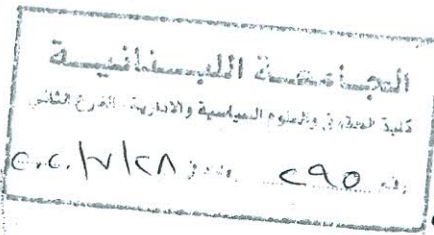 الجامعة اللبنانية
كلية الحقوق والعلوم السياسية والادارية - الفرع الثاني
رقم ٢٩٥ تاريخ ٢٠٢٠/٧/٢٨